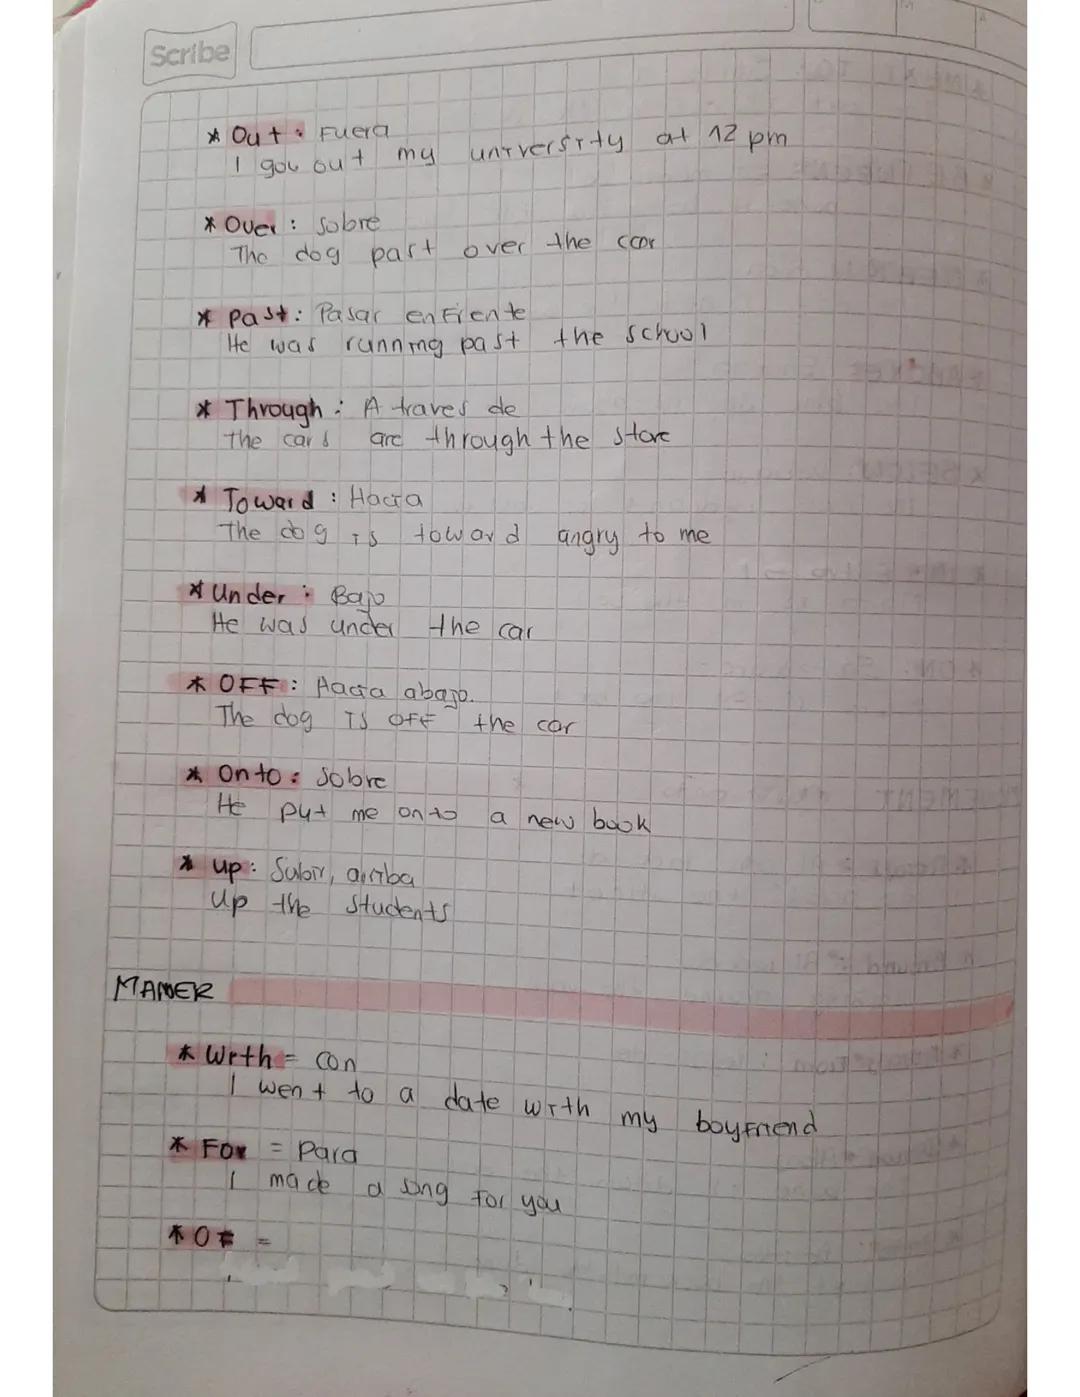 Scribe
* Out: Fuera
I gou out my university at 12 pm
* Over: Sobre
The dog part over the car
* Past: Pasar enfrente
He was running past the school
* Through: A traves de
The cars are through the store
* Toward: Hacia
The dog is toward angry to me
* Under: Bajo
He was under the car
* OFF: Hacia abajo.
The dog is off the car
* Onto: Sobre
He put me onto a new book
* up: Subir, arriba
Up the students
MANER
* With = con
I went to a date with my boyfriend
* For = Para
I made a song for you
* OF =